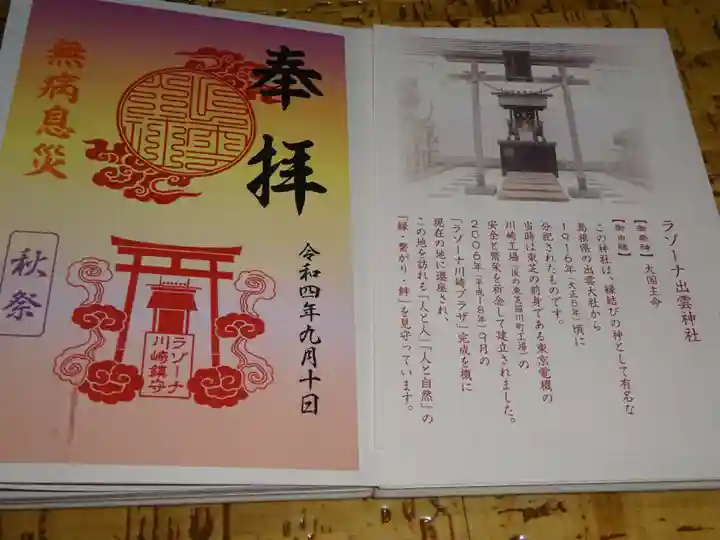 奉拝
無病息災
令和四年九月十日
秋祭
ラゾーナ
川崎鎮守
ラゾーナ出雲神社
【御祭神】大国主命
【御由緒】
この神社は、縁結びの神として有名な
島根県の出雲大社から
1916年（大正5年）頃に
分祀されたものです。
当時は東芝の前身である東京電機の
川崎工場（後の東芝堀川町工場）の
安全と繁栄を祈念して建立されました。
2006年（平成18年）9月の
「ラゾーナ川崎プラザ」完成を機に
現在の地に遷座され、
この地を訪れる「人と人」「人と自然」の
「縁・繋がり・絆」を見守っています。